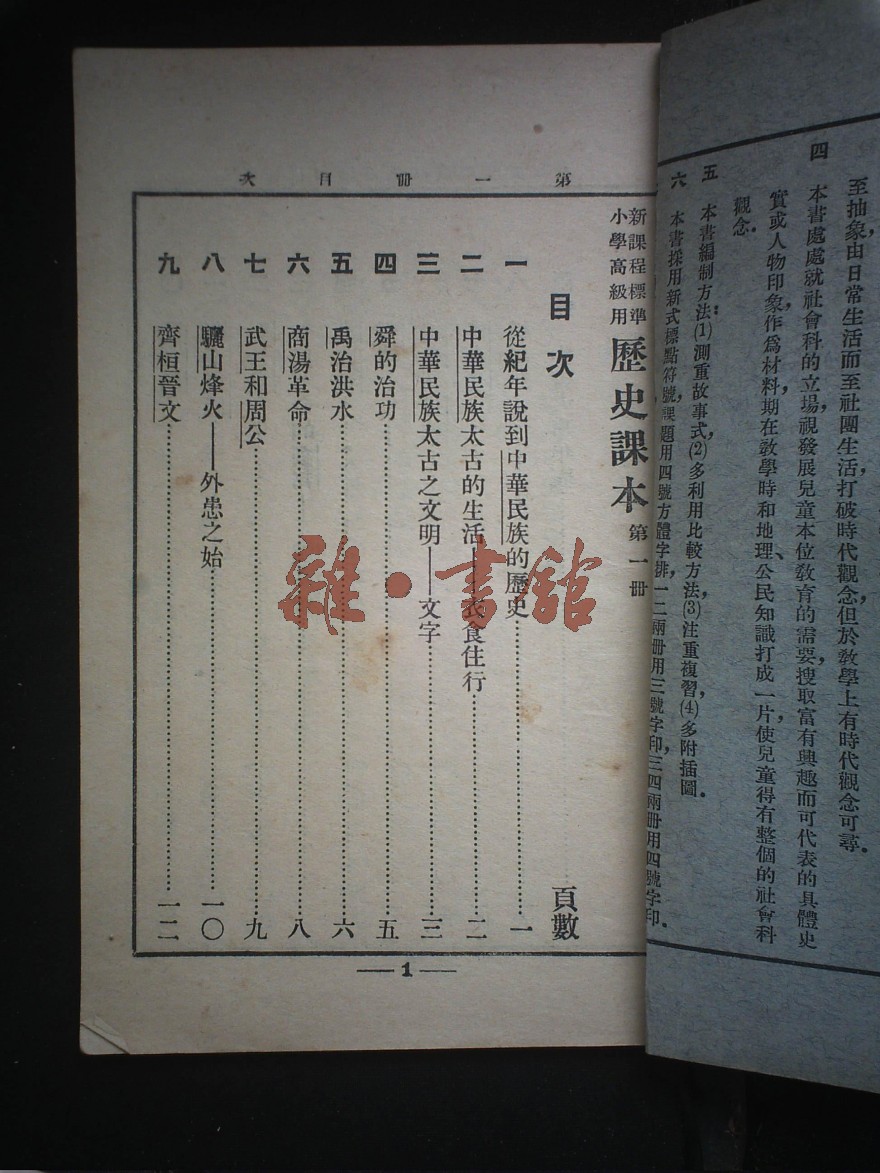 至抽象，由日常生活而至社團生活，打破時代觀念，但於教學上有時代觀念可尋。
四　本書處處就社會科的立場，視發展兒童本位教育的需要，搜取富有興趣而可代表的具體史
實或人物印象，作爲材料，期在教學時和地理、公民知識打成一片，使兒童得有整個的社會科
觀念。
五　本書編制方法：(1)測重故事式，(2)多利用比較方法，(3)注重複習，(4)多附插圖。
六　本書採用新式標點符號，課題用四號方體字排，一二兩册用三號字印，三四兩册用四號字印。
第一冊目次
新課程標準
小學高級用
歷史課本 第一冊
目次　頁數
一　從紀年說到中華民族的歷史……一
二　中華民族太古的生活——衣食住行……二
三　中華民族太古之文明——文字……三
四　舜的治功……五
五　禹治洪水……六
六　商湯革命……八
七　武王和周公……九
八　驪山烽火——外患之始……一〇
九　齊桓晉文……一二
— 1 —
雜·書館